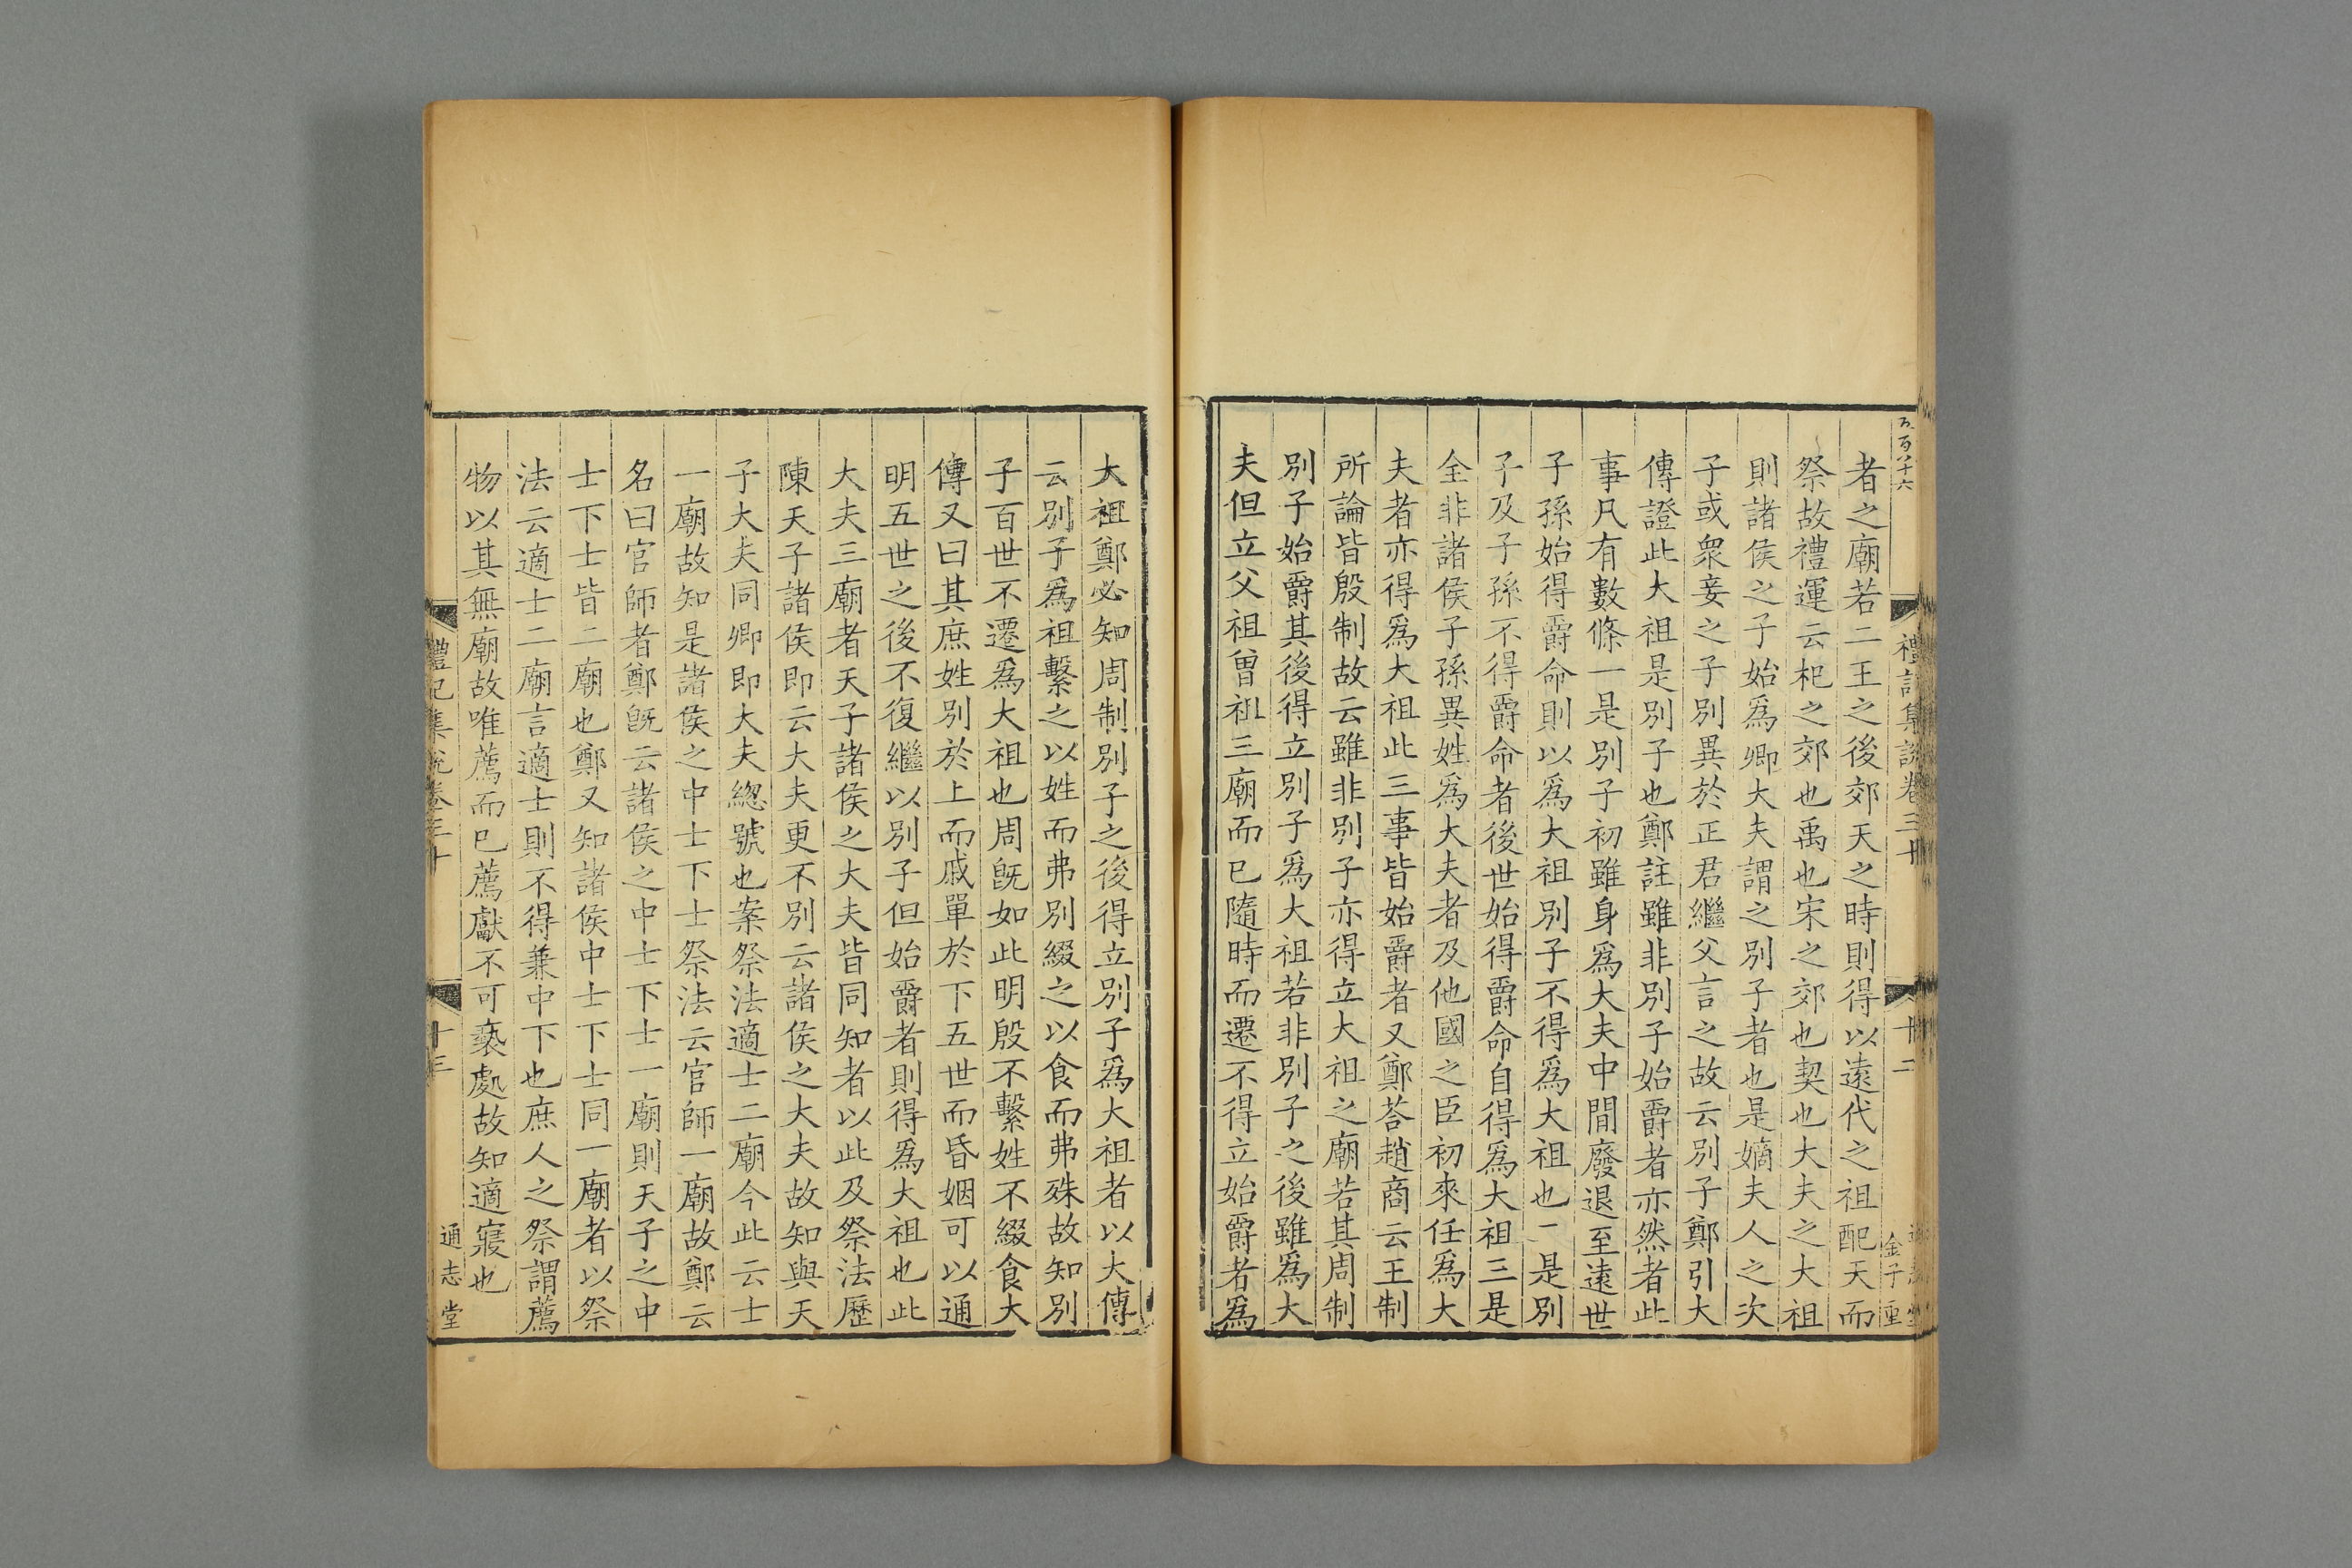 五百十六
禮記集說卷三十
十二
金子重
者之廟若二王之後郊天之時則得以遠代之祖配天而
祭故禮運云杞之郊也禹也宋之郊也契也大夫之大祖
則諸侯之子始爲卿大夫謂之別子者也是嫡夫人之次
子或衆妾之子別異於正君繼父言之故云別子鄭引大
傳證此大祖是別子也鄭註雖非別子始爵者亦然者此
事凡有數條一是別子初雖身爲大夫中閒廢退至遠世
子孫始得爵命則以爲大祖別子不得爲大祖也一是別
子及子孫不得爵命者後世始得爵命自得爲大祖三是
全非諸侯子孫異姓爲大夫者及他國之臣初來任爲大
夫者亦得爲大祖此三事皆始爵者又鄭荅趙商云王制
所論皆殷制故云雖非別子亦得立大祖之廟若其周制
別子始爵其後得立別子爲大祖若非別子之後雖爲大
夫但立父祖曾祖三廟而已隨時而遷不得立始爵者爲
大祖鄭必知周制別子之後得立別子爲大祖者以大傳
云別子爲祖繫之以姓而弗別綴之以食而弗殊故知別
子百世不遷爲大祖也周旣如此明殷不繫姓不綴食大
傳又曰其庶姓別於上而戚單於下五世而昏姻可以通
明五世之後不復繼以別子但始爵者則得爲大祖也此
大夫三廟者天子諸侯之大夫皆同知者以此及祭法歷
陳天子諸侯卽云大夫更不別云諸侯之大夫故知與天
子大夫同卿卽大夫緫號也案祭法適士二廟今此云士
一廟故知是諸侯之中士下士祭法云官師一廟故鄭云
名曰官師者鄭旣云諸侯之中士下士一廟則天子之中
士下士皆二廟也鄭又知諸侯中士下士同一廟者以祭
法云適士二廟言適士則不得兼中下也庶人之祭謂薦
物以其無廟故唯薦而已薦獻不可褻處故知適寢也
禮記集說卷三十
十三
通志堂